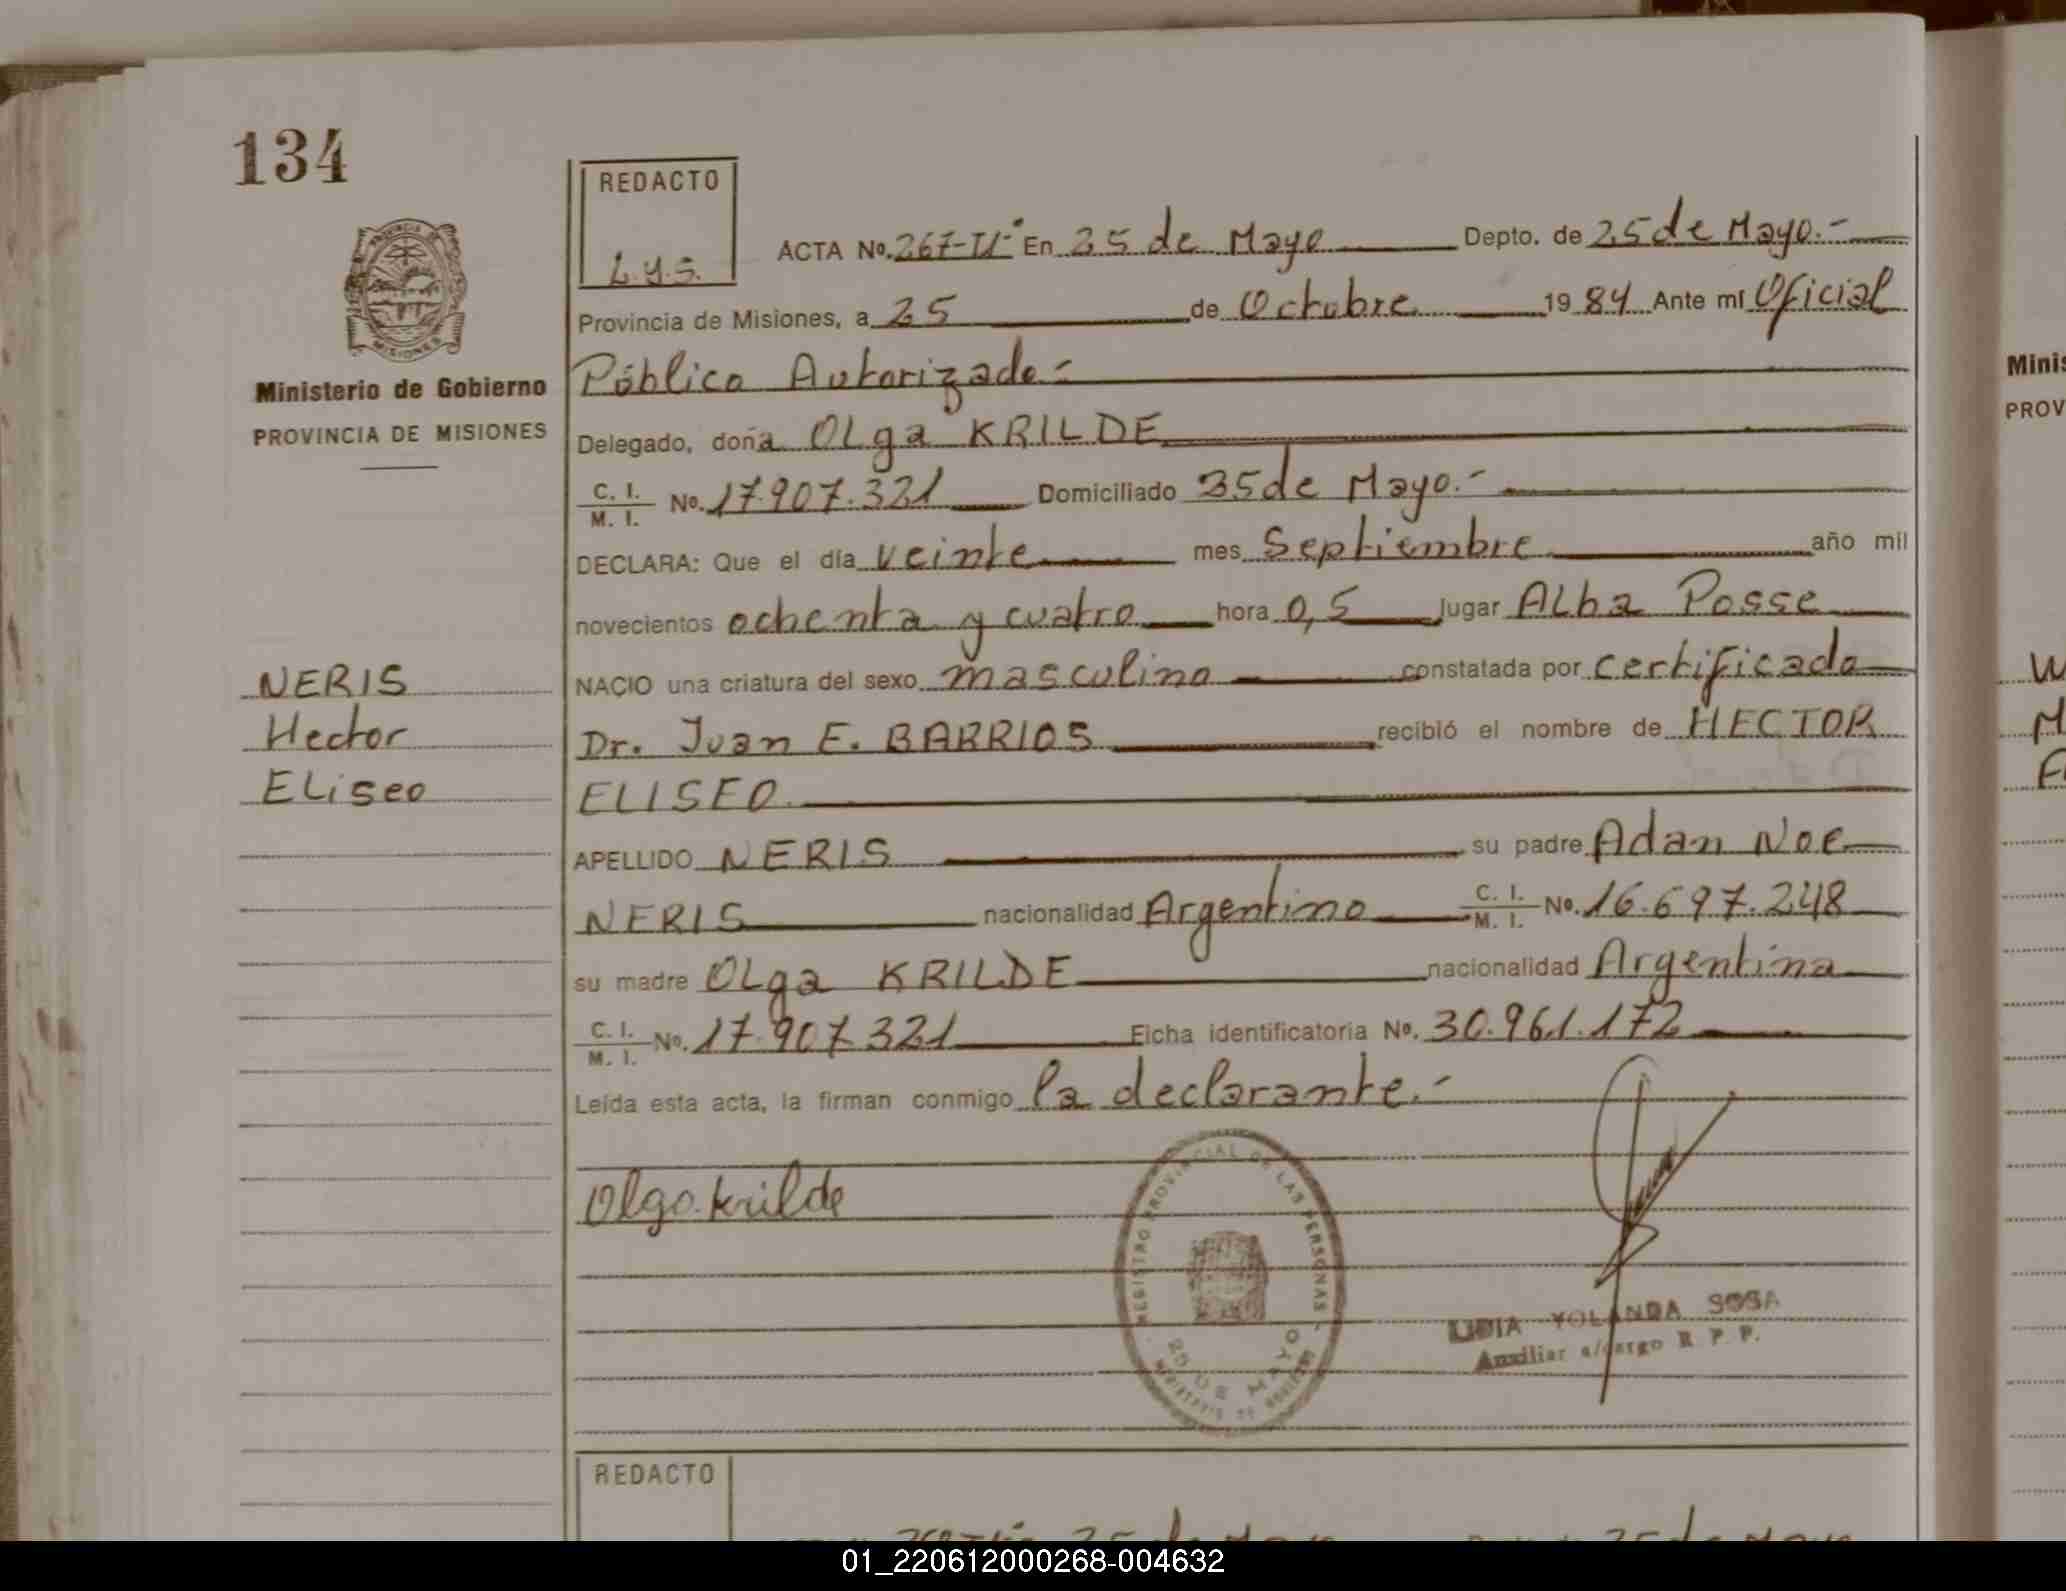 134
REDACTO
L.y.s.
ACTA No. 267-TIº En 25 de Mayo Depto. de 25 de Mayo.-
Provincia de Misiones, a 25 de Octubre 1984 Ante mí Oficial
Público Autorizado.-
Ministerio de Gobierno
PROVINCIA DE MISIONES
Delegado, doña OLga KRILDE
C. I. / M. I. No. 17.907.321 Domiciliado 25 de Mayo.-
DECLARA: Que el día veinte mes Septiembre año mil
novecientos ochenta y cuatro hora 0,5 lugar ALba Posse
NERIS
Hector
ELiseo
NACIO una criatura del sexo masculino constatada por certificado
Dr. Juan E. BARRIOS recibió el nombre de HECTOR
ELISEO
APELLIDO NERIS su padre Adan Noe
NERIS nacionalidad Argentino C. I. / M. I. No. 16.697.248
su madre OLga KRILDE nacionalidad Argentina
C. I. / M. I. No. 17.907.321 Ficha identificatoria No. 30.961.172
Leída esta acta, la firman conmigo la declarante.-
Olga Krilde
REGISTRO PROVINCIAL DE LAS PERSONAS
25 DE MAYO
MINISTERIO DE GOBIERNO
LIDIA YOLANDA SOSA
Auxiliar a/cargo R P P.
REDACTO
Minis
PROV
01_220612000268-004632